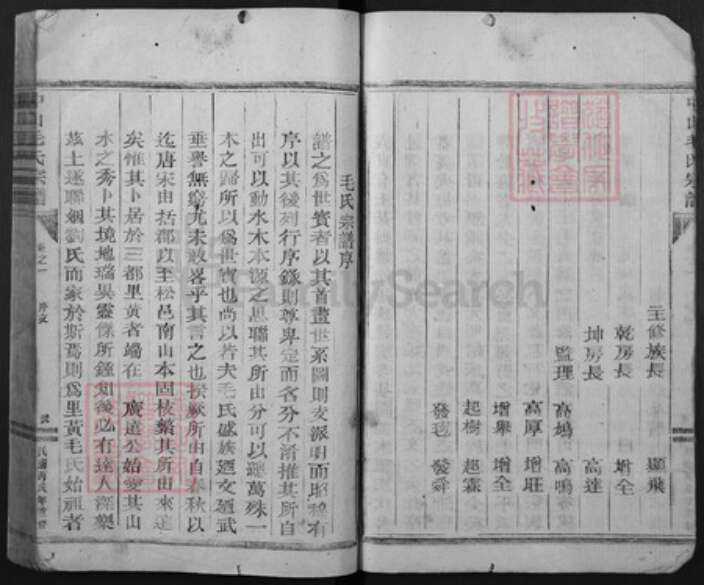 中山毛氏宗譜
主修族長 顯飛
乾房長 增全
坤房長 高達
監理 高鳴 高鳴
高厚 增旺
增舉 增全
起樹 起霖
發 發舜
毛氏宗譜序
譜之爲世寶者以其首畫世系圖則支派明而昭穆有
序以其後列行序錄則尊卑定而名分不淆推其所自
出可以動水木本源之思聯其所由分可以聯萬殊一
本之歸所以爲世寶也尚以若夫毛氏盛族迺文迺武
垂譽無窮尤未敢畧乎其言之也揆厥所由自春秋以
迄唐宋由括郡以至松邑南山本固枝繁其所由來遠
矣惟其卜居於三都里黃者端在 廣遠公始愛其山
水之秀卜其境地瑞異靈傑所鍾知後必有達人深樂
茲土遂聯姻劉氏而家於斯焉則爲里黃毛氏始祖者
中山毛氏宗譜
卷之一 序文
FamilySearch